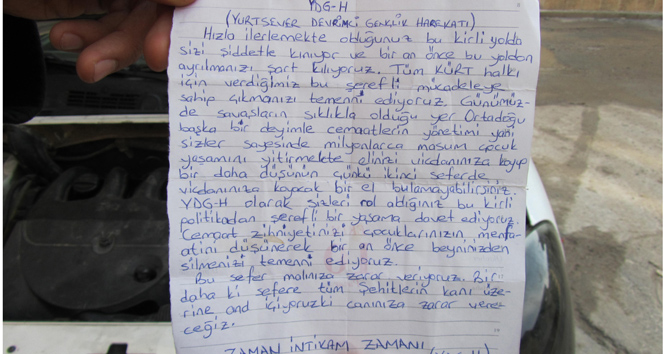 YDG-H
(YURTSEVER DEVRİMCİ GENÇLİK HAREKATI)
Hızla ilerlemekte olduğunuz bu kirli yolda
sizi şiddetle kınıyor ve bir an önce bu yoldan
ayrılmanızı şart kılıyoruz. Tüm KÜRT halkı
için verdiğimiz bu şerefli mücadeleye
sahip çıkmanızı temenni ediyoruz. Günümüz-
de savaşların sıklıkla olduğu yer Ortadoğu
başka bir deyimle cemaatlerin yönetimi yani
sizler sayesinde milyonlarca masum çocuk
yaşamını yitirmekte elinizi vicdanınıza koyup
bir daha düşünün çünkü ikinci seferde
vicdanınıza koyacak bir el bulamayabilirsiniz.
YDG-H olarak sizleri rol aldığınız bu kirli
politikadan şerefli bir yaşama davet ediyoruz.
Cemaat zihniyetinizi çocuklarınızın menfa-
atini düşünerek bir an önce beyninizden
silmenizi temenni ediyoruz.
Bu sefer malınıza zarar veriyoruz. Bir
daha ki sefere tüm Şehitlerin kanı üze-
rine and içiyoruzki canınıza zarar vere-
ceğiz.
ZAMAN İNTİKAM ZAMANI